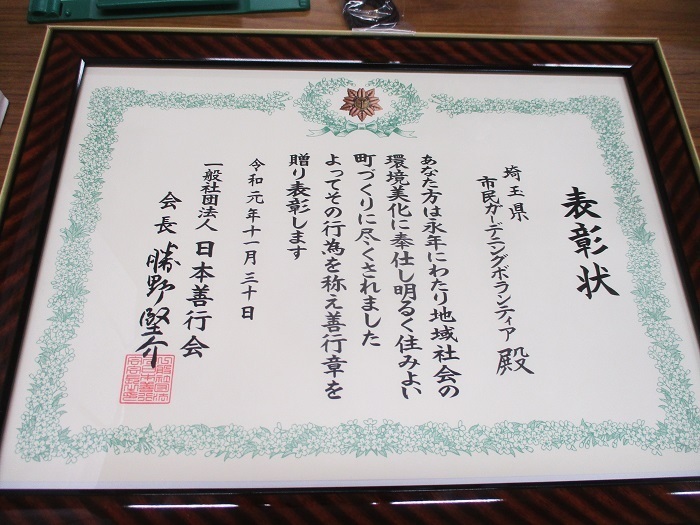 表彰状
埼玉県
市民ガーデニングボランティア 殿
あなた方は永年にわたり地域社会の
環境美化に奉仕し明るく住みよい
町づくりに尽くされました
よってその行為を称え善行章を
贈り表彰します
令和元年十一月三十日
一般社団法人 日本善行会
会長 勝野堅介